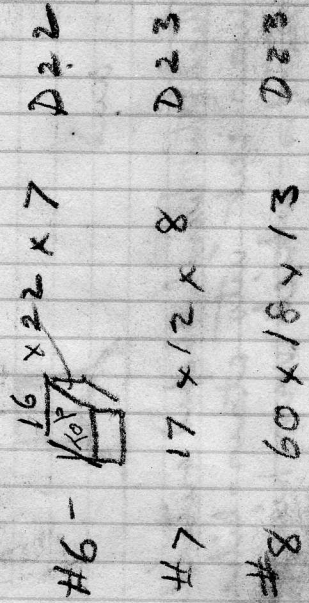 #6 - 16 x 22 x 7 D22
TOP
#7 17 x 12 x 8 D23
#8 60 x 18 x 13 D23